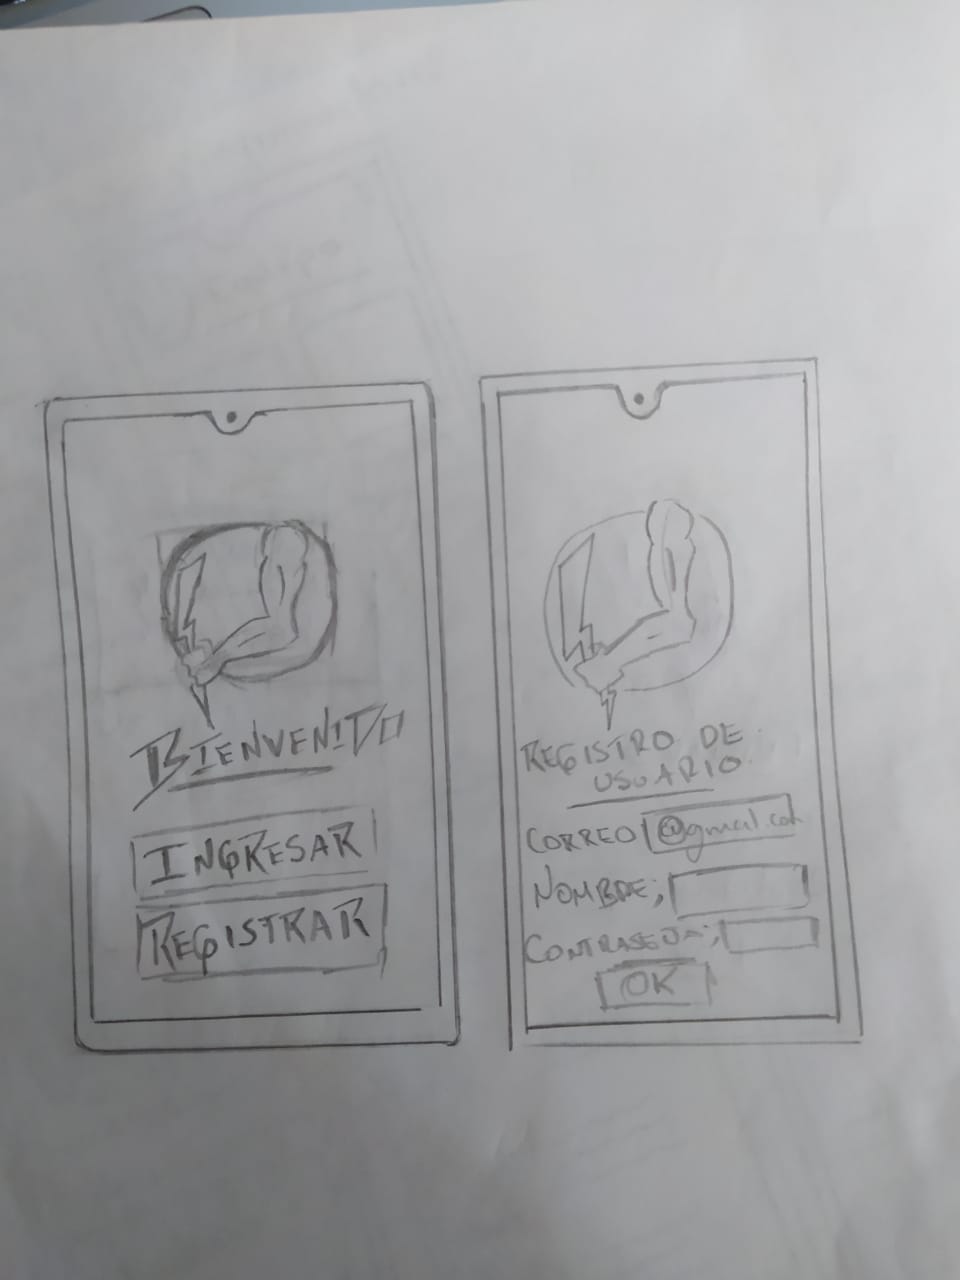 BIENVENIDO
INGRESAR
REGISTRAR
REGISTRO DE
USUARIO
CORREO @gmail.com
NOMBRE;
CONTRASEÑA;
OK